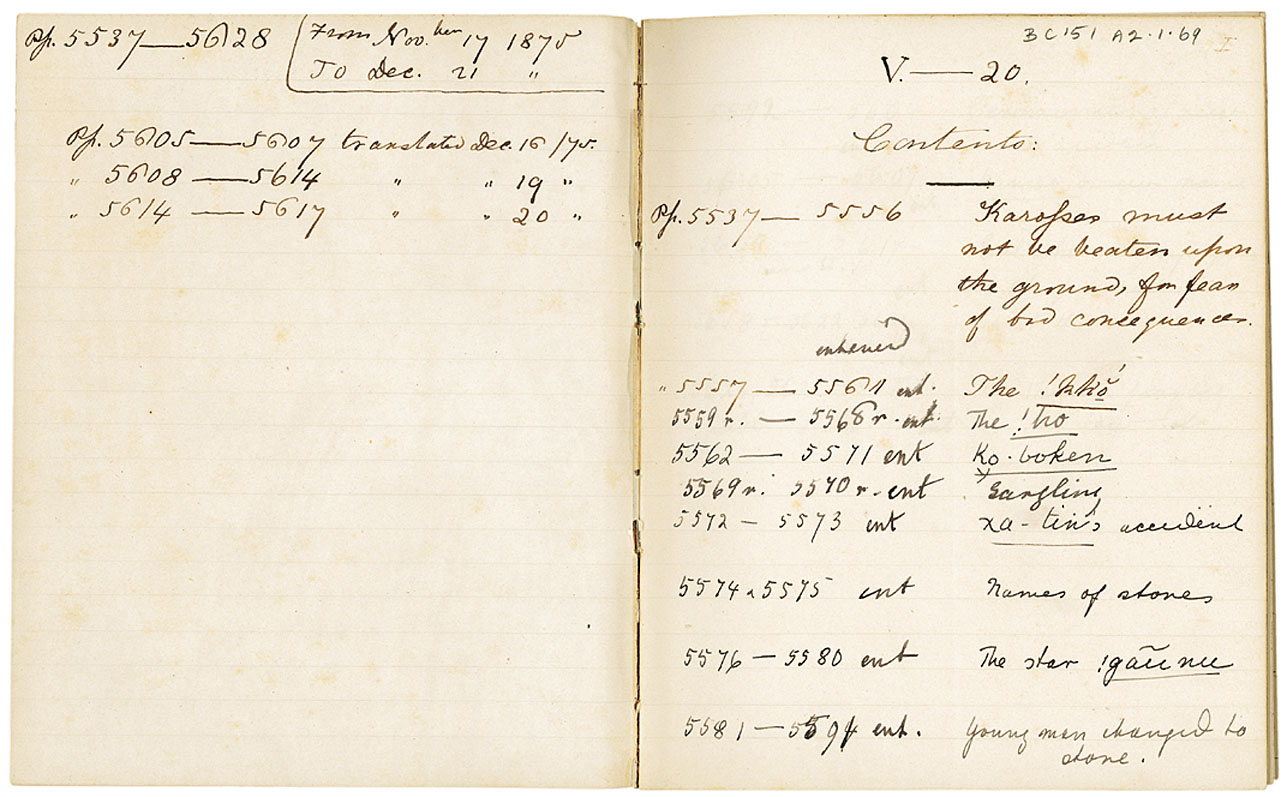 Pp. 5537—5628 (From Nov.ber 17 1875
To Dec. 21 "
Pp. 5605—5607 translated Dec. 16 /75.
" 5608—5614 " " 19 "
" 5614—5617 " " 20 "
BC 151 A2.1.69 I
V.—20.
Contents:
Pp. 5537—5556 Karosses must
not be beaten upon
the ground, for fear
of bad consequences.
" 5557—5561 ent. The
5559 r.—5568 r. ent. The
5562—5571 ent
5569 r. 5570 r. ent
5572—5573 ent xa-tin's accident
5574 & 5575 ent Names of stones
5576—5580 ent The star !gãũnu
5581—5594 ent. Young man changed to
stone.